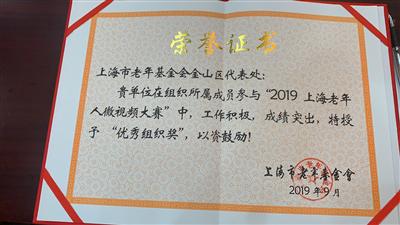 荣誉证书
上海市老年基金会金山区代表处：
贵单位在组织所属成员参与“2019 上海老年
人微视频大赛”中，工作积极，成绩突出，特授
予“优秀组织奖”，以资鼓励！
上海市老年基金會
2019年9月